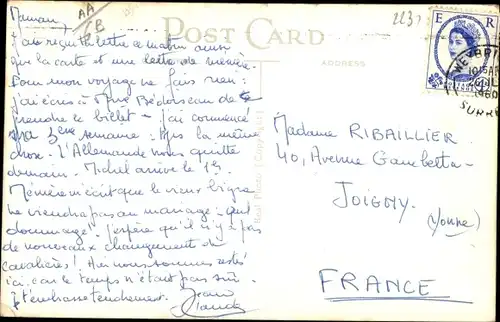 POST CARD
ADDRESS
AA
CB
2231
E R
WEYBRI
10 15 A
1960
SURR
Maman,
J'ai reçu ta lettre ce matin ainsi
que la carte et une lettre de
Pour mon voyage ne fais rien :
j'ai écris à de
prendre le billet - j'ai commencé
ma 3ème semaine : la même
chose. L'Allemande nous quitte
demain. Michel arrive le 13.
m'écrit que le vieux
ne viendra pas au mariage - quel
dommage ! j'espère qu'il n'y a pas
de nouveaux changements de
cavalières ! nous sommes restés
ici, car le temps n'était pas sûr.
Je t'embrasse tendrement.
Jean
Claude
Real Photo
Madame RIBAILLIER
40, Avenue Gambetta -
JOIGNY.
(Yonne)
FRANCE